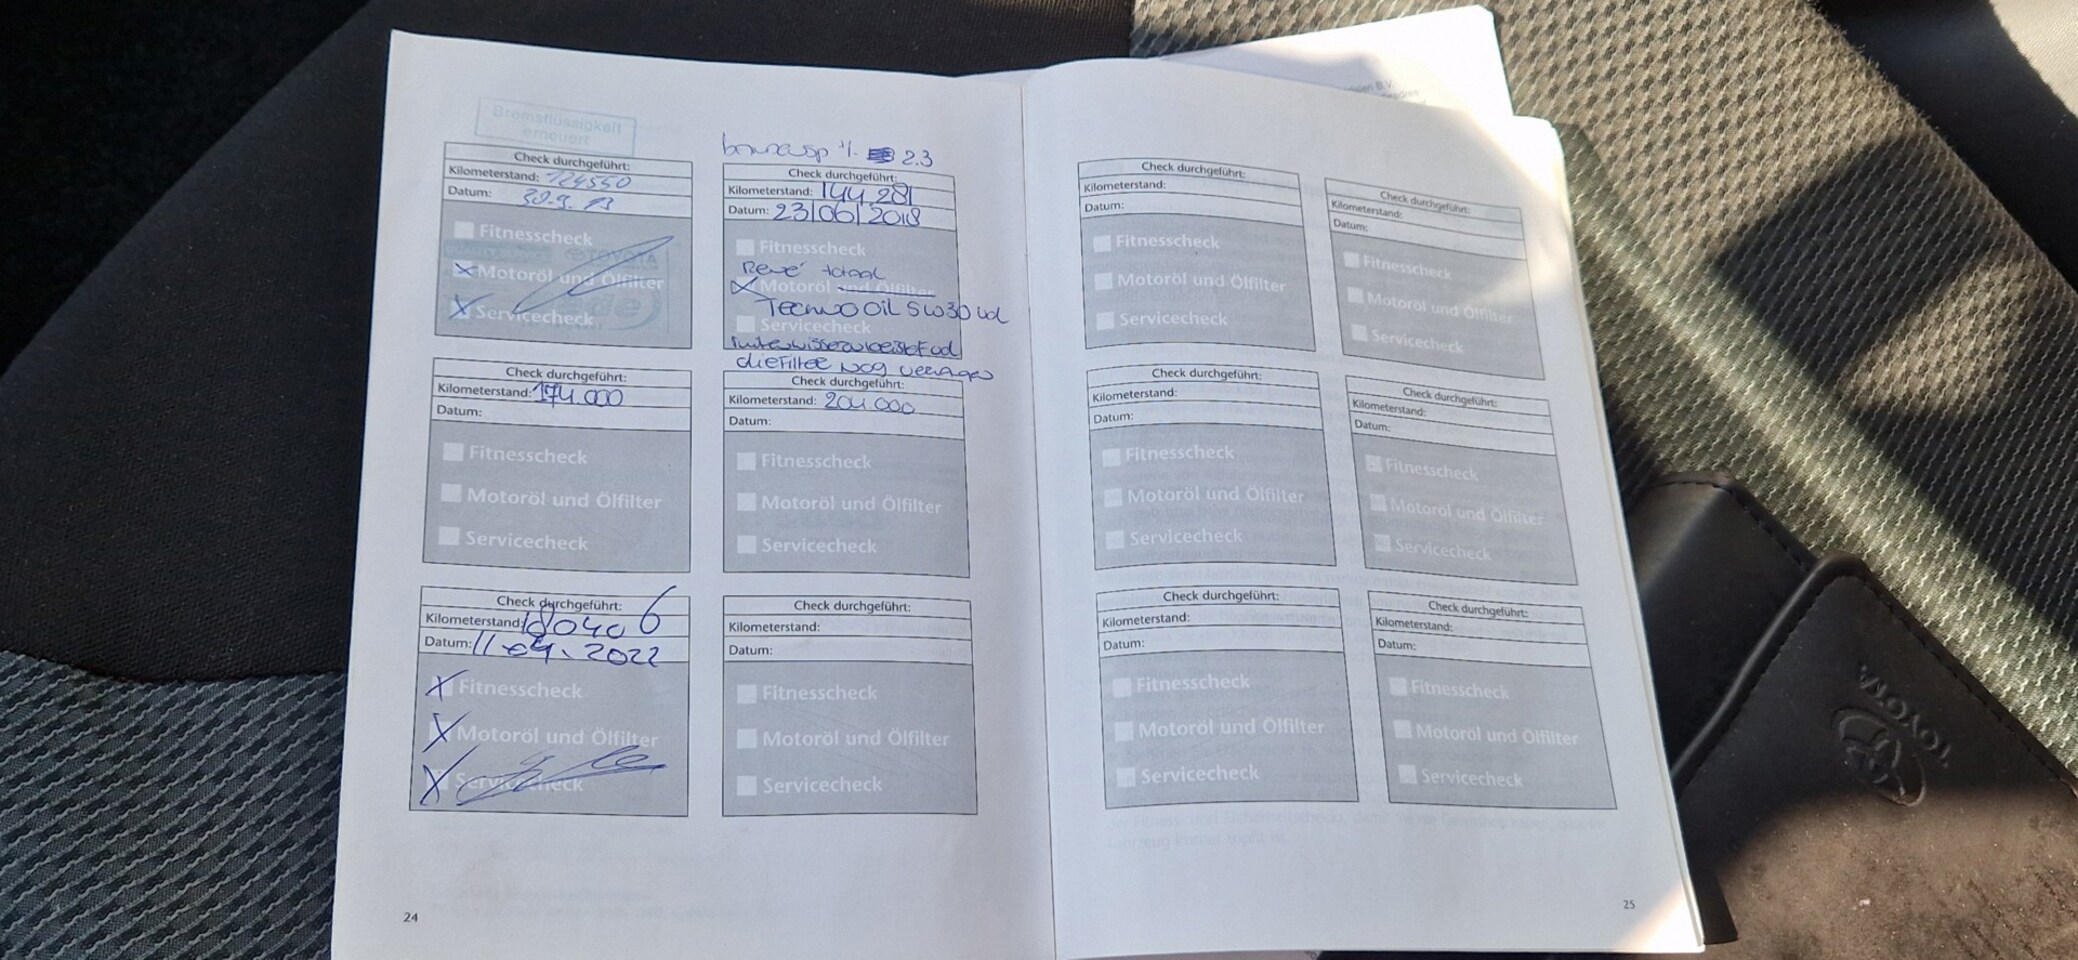 Bremsflüssigkeit
erneuert
Check durchgeführt:
Kilometerstand: 124550
Datum:
Fitnesscheck
Motoröl und Ölfilter
Servicecheck
2.3
Check durchgeführt:
Kilometerstand: 144.281
Datum: 23/06/2018
Fitnesscheck
René totaal
Motoröl und Ölfilter
Oil 5W30
Servicecheck
die Filter nog
Check durchgeführt:
Kilometerstand: 174.000
Datum:
Fitnesscheck
Motoröl und Ölfilter
Servicecheck
Check durchgeführt:
Kilometerstand: 204.000
Datum:
Fitnesscheck
Motoröl und Ölfilter
Servicecheck
Check durchgeführt:
Kilometerstand: 180406
Datum: 11-04.2022
Fitnesscheck
Motoröl und Ölfilter
Servicecheck
Check durchgeführt:
Kilometerstand:
Datum:
Fitnesscheck
Motoröl und Ölfilter
Servicecheck
24
Check durchgeführt:
Kilometerstand:
Datum:
Fitnesscheck
Motoröl und Ölfilter
Servicecheck
Check durchgeführt:
Kilometerstand:
Datum:
Fitnesscheck
Motoröl und Ölfilter
Servicecheck
Check durchgeführt:
Kilometerstand:
Datum:
Fitnesscheck
Motoröl und Ölfilter
Servicecheck
Check durchgeführt:
Kilometerstand:
Datum:
Fitnesscheck
Motoröl und Ölfilter
Servicecheck
Check durchgeführt:
Kilometerstand:
Datum:
Fitnesscheck
Motoröl und Ölfilter
Servicecheck
Check durchgeführt:
Kilometerstand:
Datum:
Fitnesscheck
Motoröl und Ölfilter
Servicecheck
25
B.V.
TOYOTA